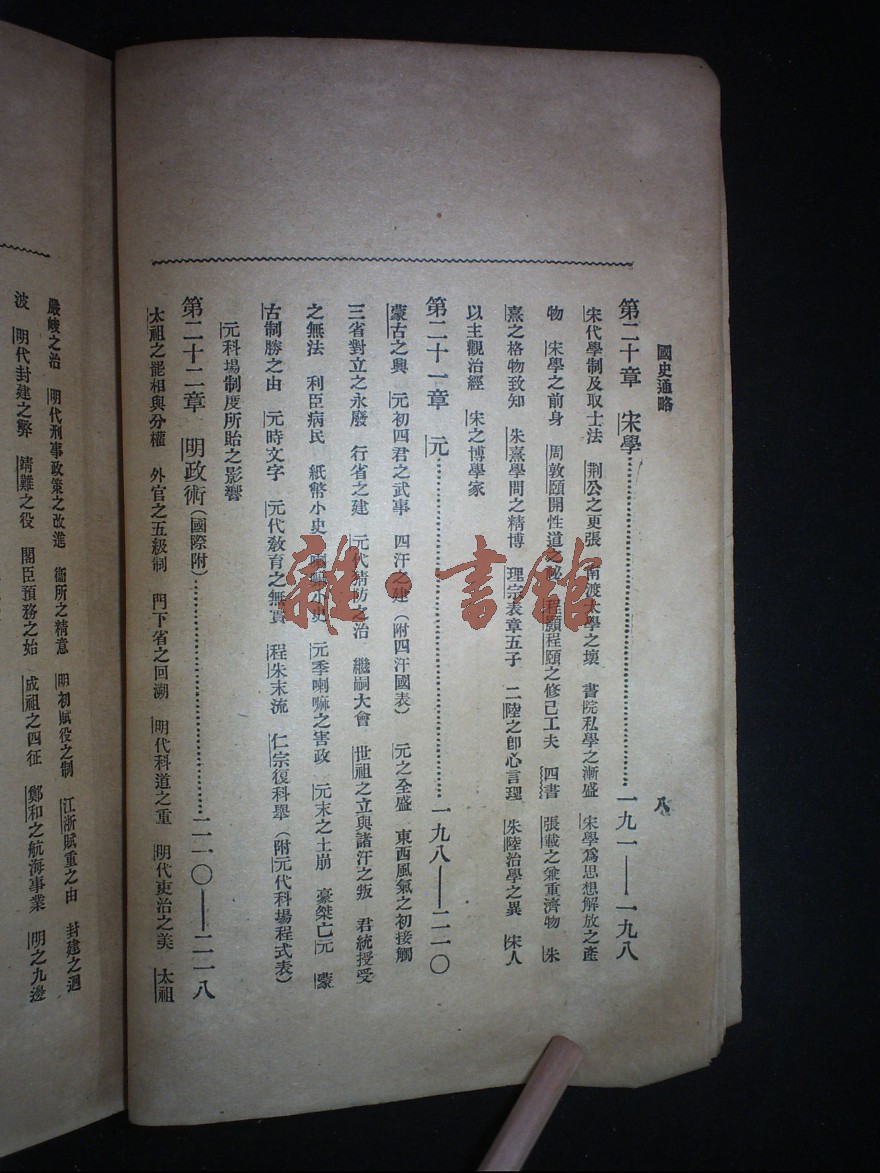 國史通略
八
第二十章　宋學……一九一——一九八
宋代學制及取士法　荆公之更張　南渡太學之壞　書院私學之漸盛　宋學爲思想解放之產
物　宋學之前身　周敦頤開性道之秘　程顥程頤之修己工夫　四書　張載之兼重濟物　朱
熹之格物致知　朱熹學問之精博　理宗表章五子　二陸之卽心言理　朱陸治學之異　宋人
以主觀治經　宋之博學家
第二十一章　元……一九八——二一〇
蒙古之興　元初四君之武事　四汗之建（附四汗國表）　元之全盛　東西風氣之初接觸
三省對立之永廢　行省之建　元代猜防之治　繼嗣大會　世祖之立與諸汗之叛　君統授受
之無法　利臣病民　紙幣小史　喇嘛小史　元季喇嘛之害政　元末之土崩　豪桀亡元　蒙
古制勝之由　元時文字　元代敎育之無實　程朱末流　仁宗復科舉（附元代科場程式表）
元科場制度所貽之影響
第二十二章　明政術（國際附）……二一〇——二一八
太祖之罷相與分權　外官之五級制　門下省之回溯　明代科道之重　明代吏治之美　太祖
嚴峻之治　明代刑事政策之改進　衞所之精意　明初賦役之制　江浙賦重之由　封建之迴
波　明代封建之弊　靖難之役　閣臣預務之始　成祖之四征　鄭和之航海事業　明之九邊
雜·書館